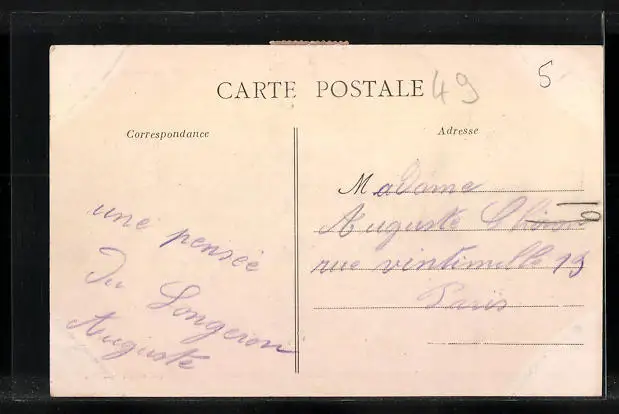 CARTE POSTALE
49
5
Correspondance
Adresse
une pensée
Du Longeron
Auguste
Madame
Auguste
rue vintimille 19
Paris